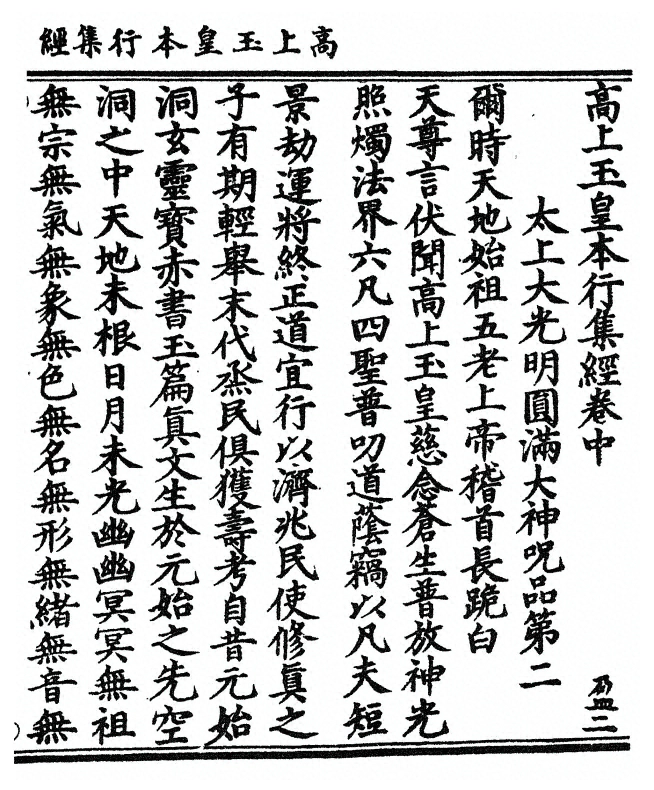 高上玉皇本行集經
高上玉皇本行集經卷中
盈二
太上大光明圓滿大神呪品第二
爾時天地始祖五老上帝稽首長跪白
天尊言伏聞高上玉皇慈念蒼生普放神光
照燭法界六凡四聖普叨道蔭竊以凡夫短
景劫運將終正道宜行以濟兆民使修眞之
子有期輕舉末代烝民俱獲壽考自昔元始
洞玄靈寶赤書玉篇眞文生於元始之先空
洞之中天地未根日月未光幽幽冥冥無祖
無宗無氣無象無色無名無形無緒無音無